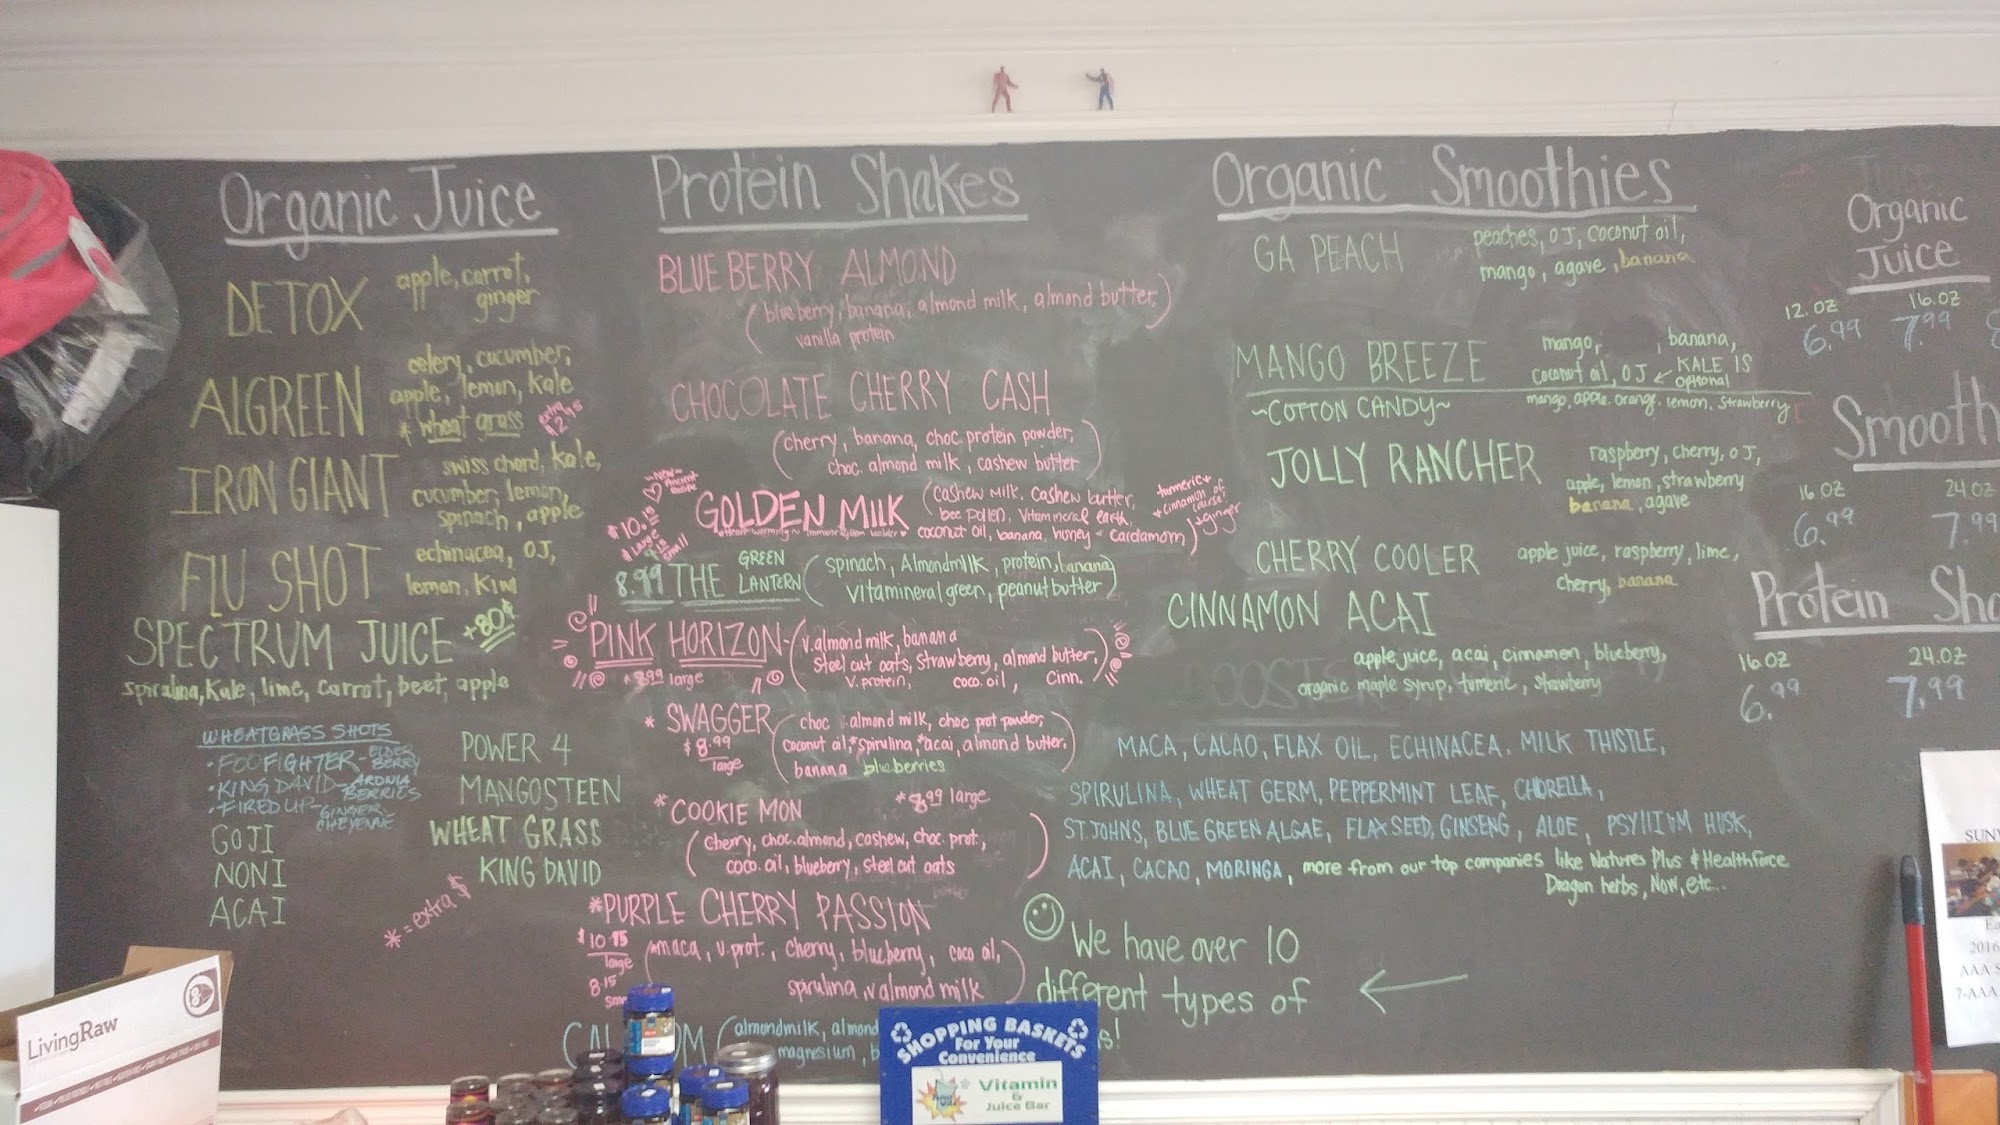 Organic Juice
DETOX
apple, carrot,
ginger
AlGREEN
celery, cucumber,
apple, lemon, kale
* wheat grass extra $2.95
IRON GIANT
swiss chord, kale,
cucumber, lemon,
spinach, apple
FLU SHOT
echinacea, OJ,
lemon, Kiwi
SPECTRUM JUICE +80¢
spirulina, Kale, lime, carrot, beet, apple
WHEATGRASS SHOTS
• FOOFIGHTER - ELDER BERRY
• KING DAVID - ARONIA BERRIES
• FIRED UP - GINGER- CHEYENNE
GOJI
NONI
ACAI
POWER 4
MANGOSTEEN
WHEAT GRASS
KING DAVID
* = extra $
Protein Shakes
BLUEBERRY ALMOND
(blueberry, banana, almond milk, almond butter,
vanilla protein
CHOCOLATE CHERRY CASH
(cherry, banana, choc protein powder,
choc. almond milk, cashew butter)
~New~
Ancient
Recipe
$10.
Large
small
GOLDEN MIlK
Heart warming ~ Immune system builder
(cashew milk, cashew butter,
bee pollen, Vitamineral earth,
coconut oil, banana, honey + cardamom)
turmeric +
cinnamon of
course!
+ ginger
8.99 THE GREEN LANTERN
(spinach, Almondmilk, protein, banana
Vitamineral green, peanut butter)
PINK HORIZON-
$8.99 large
(v. almond milk, banana
Steel cut oats, strawberry, almond butter,
v. protein, coco. oil, cinn.)
* SWAGGER
$8.99
large
(choc almond milk, choc prot powder,
coconut oil, *spirulina, *acai, almond butter,
banana blueberries)
* COOKIE MON
*8.99 large
(cherry, choc. almond, cashew, choc. prot.,
coco. oil, blueberry, steel cut oats)
*PURPLE CHERRY PASSION
$10.75
large
8.15
(*maca, v. prot., cherry, blueberry, coco oil,
spirulina, v almond milk)
(almondmilk, almond
magnesium,
Organic Smoothies
GA PEACH
peaches, OJ, coconut oil,
mango, agave, banana
MANGO BREEZE
mango, banana,
coconut oil, OJ ← KALE IS
OPTIONAL
~COTTON CANDY~
mango, apple, orange, lemon, strawberry
JOLLY RANCHER
raspberry, cherry, OJ,
apple, lemon, strawberry
banana, agave
CHERRY COOLER
apple juice, raspberry, lime,
cherry, banana
CINNAMON ACAI
apple juice, acai, cinnamon, blueberry,
organic maple syrup, tumeric, strawberry
MACA, CACAO, FLAX OIL, ECHINACEA, MILK THISTLE,
SPIRULINA, WHEAT GERM, PEPPERMINT LEAF, CHORELLA,
ST. JOHNS, BLUE GREEN ALGAE, FLAX SEED, GINSENG, ALOE, PSYllIUM HUSK,
ACAI, CACAO, MORINGA, more from our top companies like Natures Plus & Healthforce
Dragon herbs, Now, etc...
We have over 10
different types of
Organic
Juice
12.OZ 16.OZ
6.99 7.99
Smooth
16 OZ 24.OZ
6.99 7.99
Protein Sha
16 OZ 24.OZ
6.99 7.99
LivingRaw
SHOPPING BASKETS
For Your
Convenience
Vitamin
&
Juice Bar
SUN
2016
AAA S
7-AAA